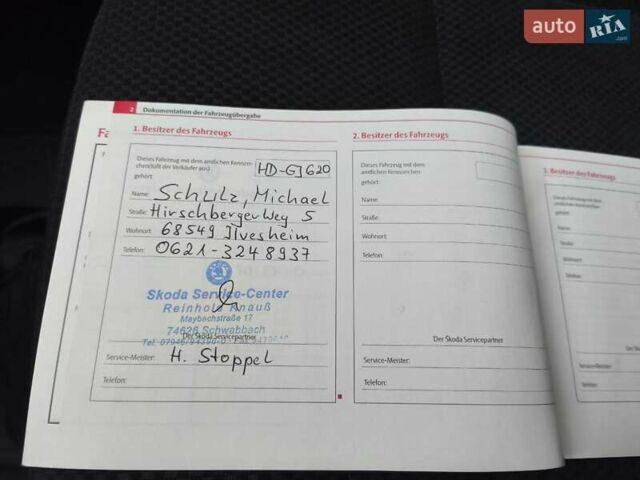 auto RIA.com
2 Dokumentation der Fahrzeugübergabe
1. Besitzer des Fahrzeugs
Dieses Fahrzeug mit dem amtlichen Kennzei-
chen(läßt der Verkäufer aus) HD-GJ620
gehört:
Name: Schulz, Michael
Straße: Hirschberger Weg 5
Wohnort: 68549 Ilvesheim
Telefon: 0621-3248937
Skoda Service-Center
Reinhold Knauß
Maybachstraße 17
74626 Schwabbach
Der Škoda Servicepartner
Service-Meister: H. Stoppel
Telefon:
2. Besitzer des Fahrzeugs
Dieses Fahrzeug mit dem
amtlichen Kennzeichen
gehört:
Name:
Straße:
Wohnort:
Telefon:
Der Škoda Servicepartner
Service-Meister:
Telefon:
3. Besitzer des Fahrzeugs
Dieses Fahrzeug mit dem
amtlichen Kennzeichen
gehört:
Name:
Straße:
Wohnort:
Telefon:
Der Sk
Service-Meister:
Telefon: